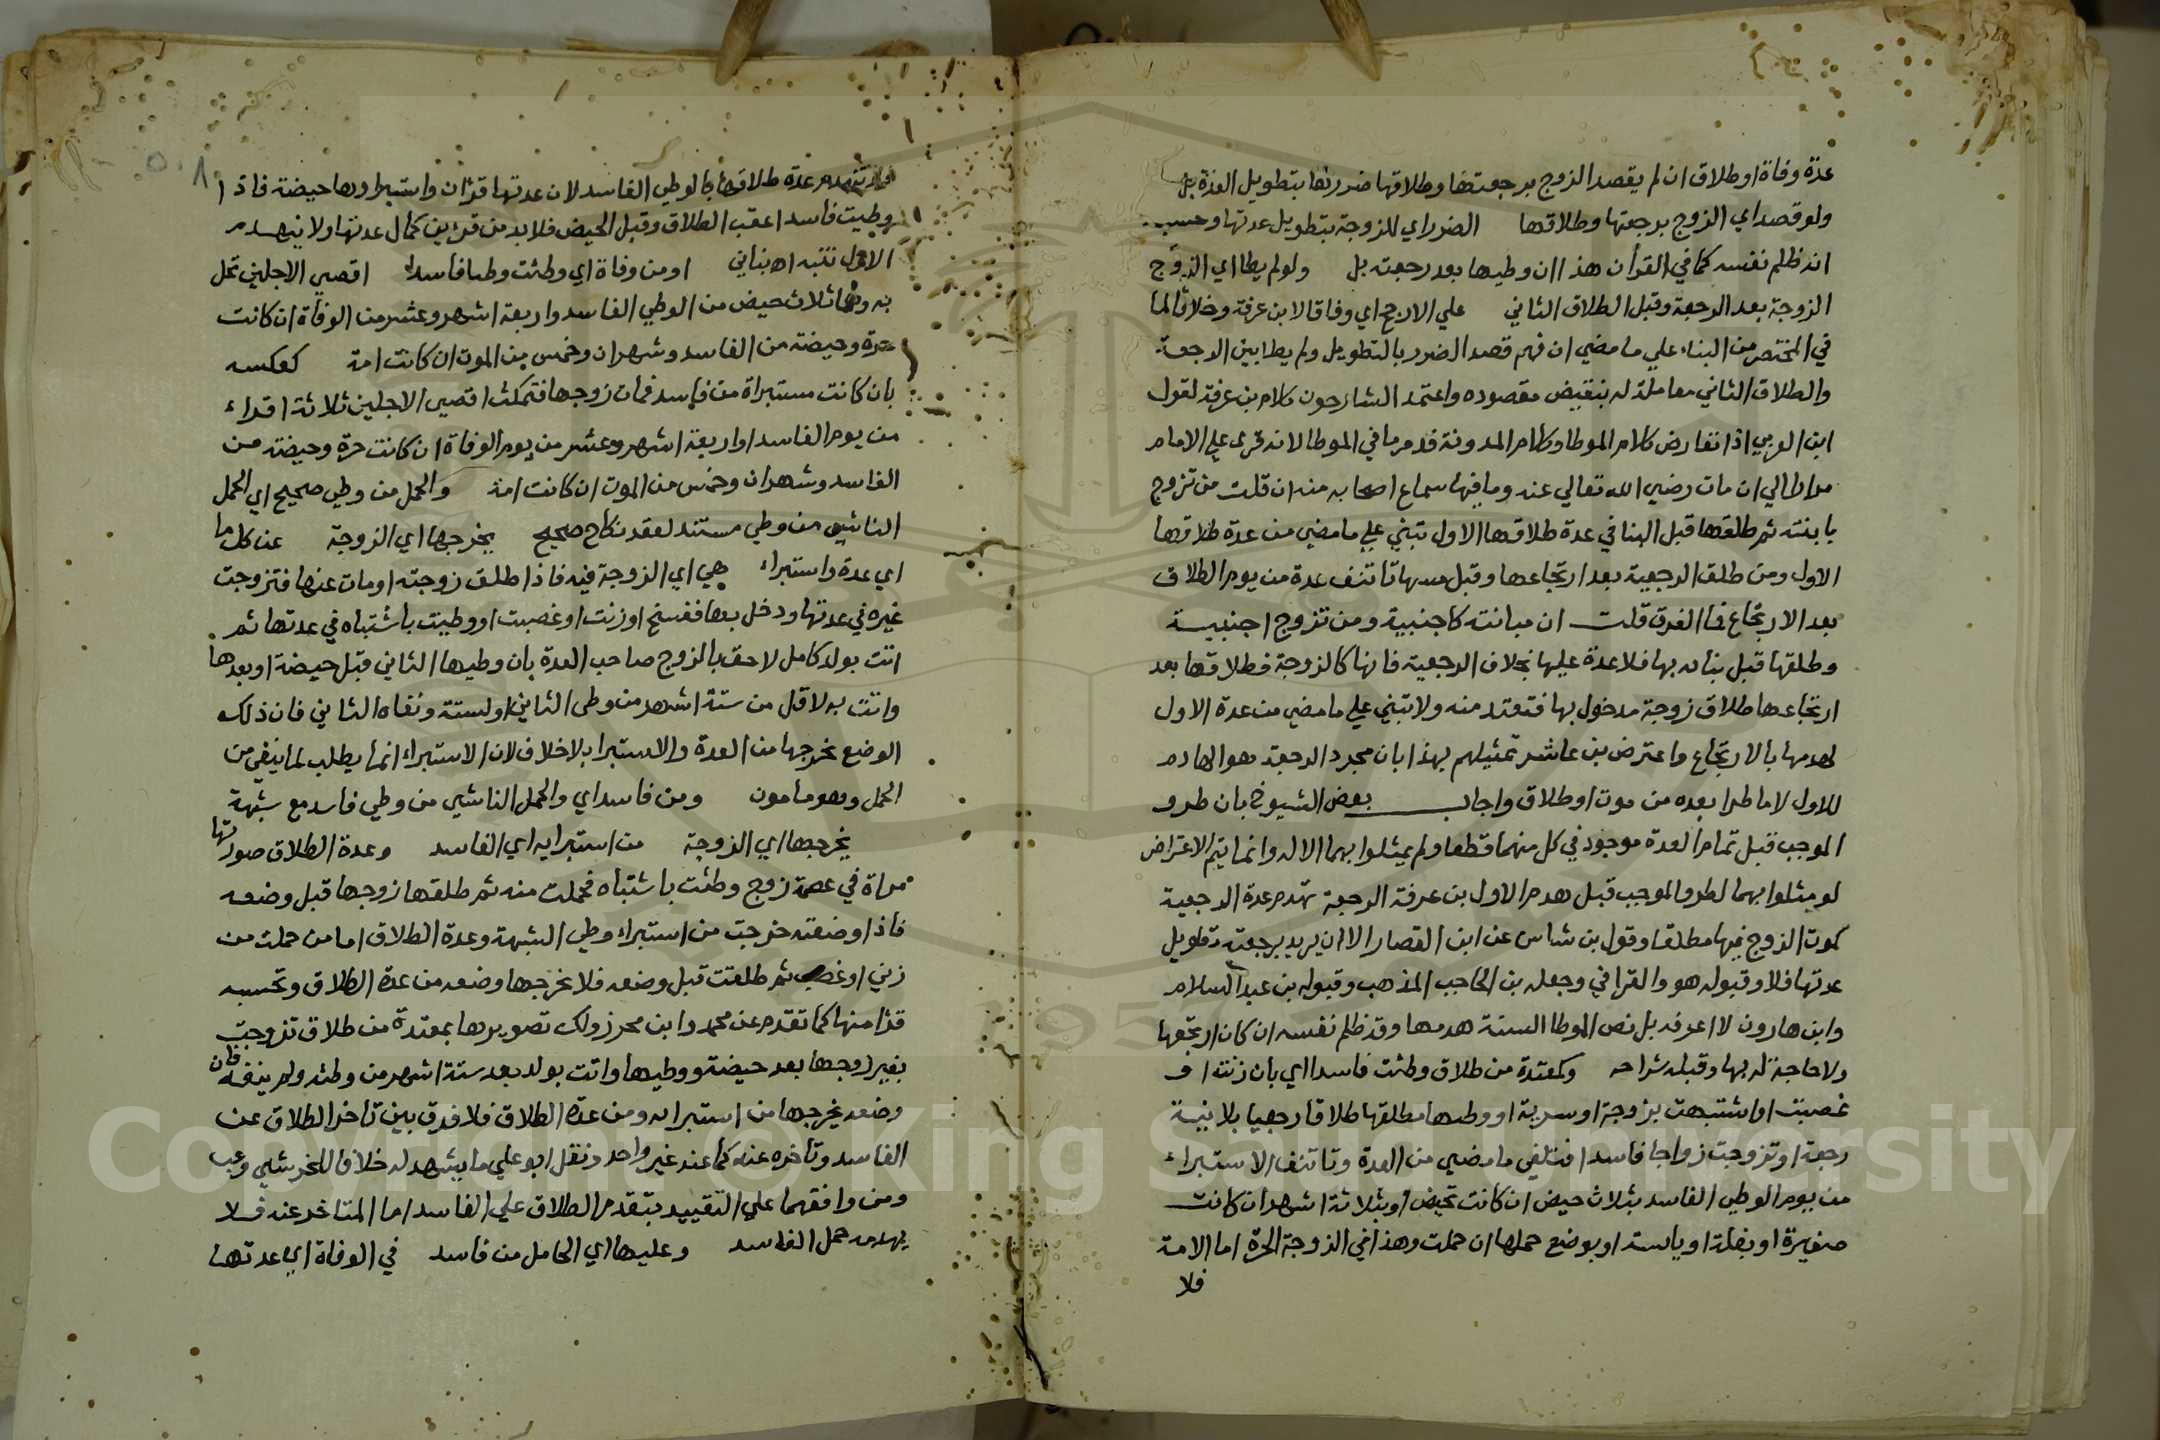 عدة وفاة او طلاق ان لم يقصد الزوج برجعتها وطلاقها ضررتها بتطويل العدة بل
ولو قصد اي الزوج برجعتها وطلاقها الضرر اي للزوجة بتطويل عدتها وحسبه
انه ظلم نفسه كما في القرآن هذا ان وطيها بعد رجعته بل ولو لم يطا اي الزوج
الزوجة بعد الرجعة وقبل الطلاق الثاني علي الارجح اي وفاقا لابن عرفة وخلافا لما
في المختصر من البناء علي ما مضي ان فهم قصد الضرر بالتطويل ولم يطا بين الرجعة
والطلاق الثاني معاملة له بنقيض مقصوده واعتمد الشارحون كلام بن عرفة لقول
ابن العربي اذا تعارض كلام الموطا وكلام المدونة قدم ما في الموطا لانه قرى علي الامام
مرارا الي ان مات رضي الله تعالي عنه وما فيها سماع اصحابه منه ان قلت من تزوج
بابنته ثم طلقها قبل البنا في عدة طلاقها الاول تبني علي ما مضي من عدة طلاقها
الاول ومن طلق الرجعية بعد ارتجاعها وقبل مسها تاتنف عدة من يوم الطلاق
بعد الارتجاع فما الفرق قلت ان مبانته كاجنبية ومن تزوج اجنبية
وطلقها قبل بنائه بها فلا عدة عليها بخلاف الرجعية فانها كالزوجة فطلاقها بعد
ارتجاعها طلاق زوجة مدخول بها فتعتد منه ولا تبني علي ما مضي من عدة الاول
لهدمها بالارتجاع واعترض بن عاشر تمثيلهم بهذا بان مجرد الرجعة هو الهادم
للاول لا ما طرا بعده من موت او طلاق واجاب بعض الشيوخ بان طرو
الموجب قبل تمام العدة موجود في كل منهما قطعا ولم يمثلوا بهما الا له وانما يتم الاعتراض
لو مثلوا بهما لطرو الموجب قبل هدم الاول بن عرفة الرجعة تهدم عدة الرجعية
كموت الزوج فيها مطلقا وقول بن شاس عن ابن القصار الا ان يريد برجعته تطويل
عدتها فلا وقبوله هو والقرافي وجعله بن الحاجب المذهب وقبوله بن عبد السلام
وابن هارون لا اعرفه بل نص الموطا السنة هدمها وقد ظلم نفسه ان كان ارتجعها
ولا حاجة له بها وقبله شراحه وكمعتدة من طلاق وطئت فاسدا اي بان زنت او
غصبت او اشتبهت بزوجة او سرية او وطئها مطلقها طلاقا رجعيا بلا نية
رجعة او تزوجت زواجا فاسدا فتلغي ما مضي من العدة وتاتنف الاستبراء
من يوم الوطي الفاسد بثلاث حيض ان كانت تحيض او بثلاثة اشهر ان كانت
صغيرة او بغلة او يائسة او بوضع حملها ان حملت وهذا في الزوجة الحرة اما الامة
فلا
فلا تنهدم عدة طلاقها بالوطي الفاسد لان عدتها قرآن واستبراوها حيضة فاذا
وطيت فاسدا عقب الطلاق وقبل الحيض فلا بد من قرءين كمال عدتها ولا ينهدم
الاول تنبه اه بناني او من وفاة اي وطئت وطئا فاسدا اقصي الاجلين تحل
به وهما ثلاث حيض من الوطي الفاسد واربعة اشهر وعشر من الوفاة ان كانت
حرة وحيضة من الفاسد وشهران وخمس من الموت ان كانت امة كعكسه
بان كانت مستبراة من فاسد فمات زوجها فتمكث اقصي الاجلين ثلاثة اقراء
من يوم الفاسد او اربعة اشهر وعشر من يوم الوفاة ان كانت حرة وحيضة من
الفاسد وشهران وخمس من الموت ان كانت امة والحمل من وطي صحيح اي الحمل
الناشي من وطي مستند لعقد نكاح صحيح يخرجها اي الزوجة عن كل ما
اي عدة واستبراء هي اي الزوجة فيه فاذا طلق زوجته او مات عنها فتزوجت
غيره في عدتها ودخل بها ففسخ او زنت او غصبت او وطيت باشتباه في عدتها ثم
اتت بولد كامل لاحق بالزوج صاحب العدة بان وطيها الثاني قبل حيضة او بعدها
واتت به لاقل من ستة اشهر من وطي الثاني او لستة ونفاه الثاني فان ذلك
الوضع يخرجها من العدة والاستبرا بلا خلاف لان الاستبراء انما يطلب لما ينفي من
الحمل وهو مامون ومن فاسد اي والحمل الناشي من وطي فاسد مع شبهة
يخرجها اي الزوجة من استبرايه اي الفاسد وعدة الطلاق صورتها
مراة في عصمة زوج وطئت باشتباه فحملت منه ثم طلقها زوجها قبل وضعه
فاذا وضعته خرجت من استبراء وطي الشبهة وعدة الطلاق اما من حملت من
زني او غصب ثم طلقت قبل وضعه فلا يخرجها وضعه من عدة الطلاق وتحسبه
قرا منها كما تقدم عن محمد وابن محرز ولك تصويرها بمعتدة من طلاق تزوجت
بغير زوجها بعد حيضة ووطيها واتت بولد بعد ستة اشهر من وطئه ولم ينفه فان
وضعه يخرجها من استبرائه ومن عدة الطلاق فلا فرق بين تاخر الطلاق عن
الفاسد وتاخره عنه كما عند غير واحد ونقل ابو علي ما يشهد له خلافا للخرشي وعب
ومن وافقهما علي التقييد بتقدم الطلاق علي الفاسد اما المتاخر عنه فلا
يهدمه حمل الفاسد وعليها اي الحامل من فاسد في الوفاة اي عدتها
Copyright © King Saud University